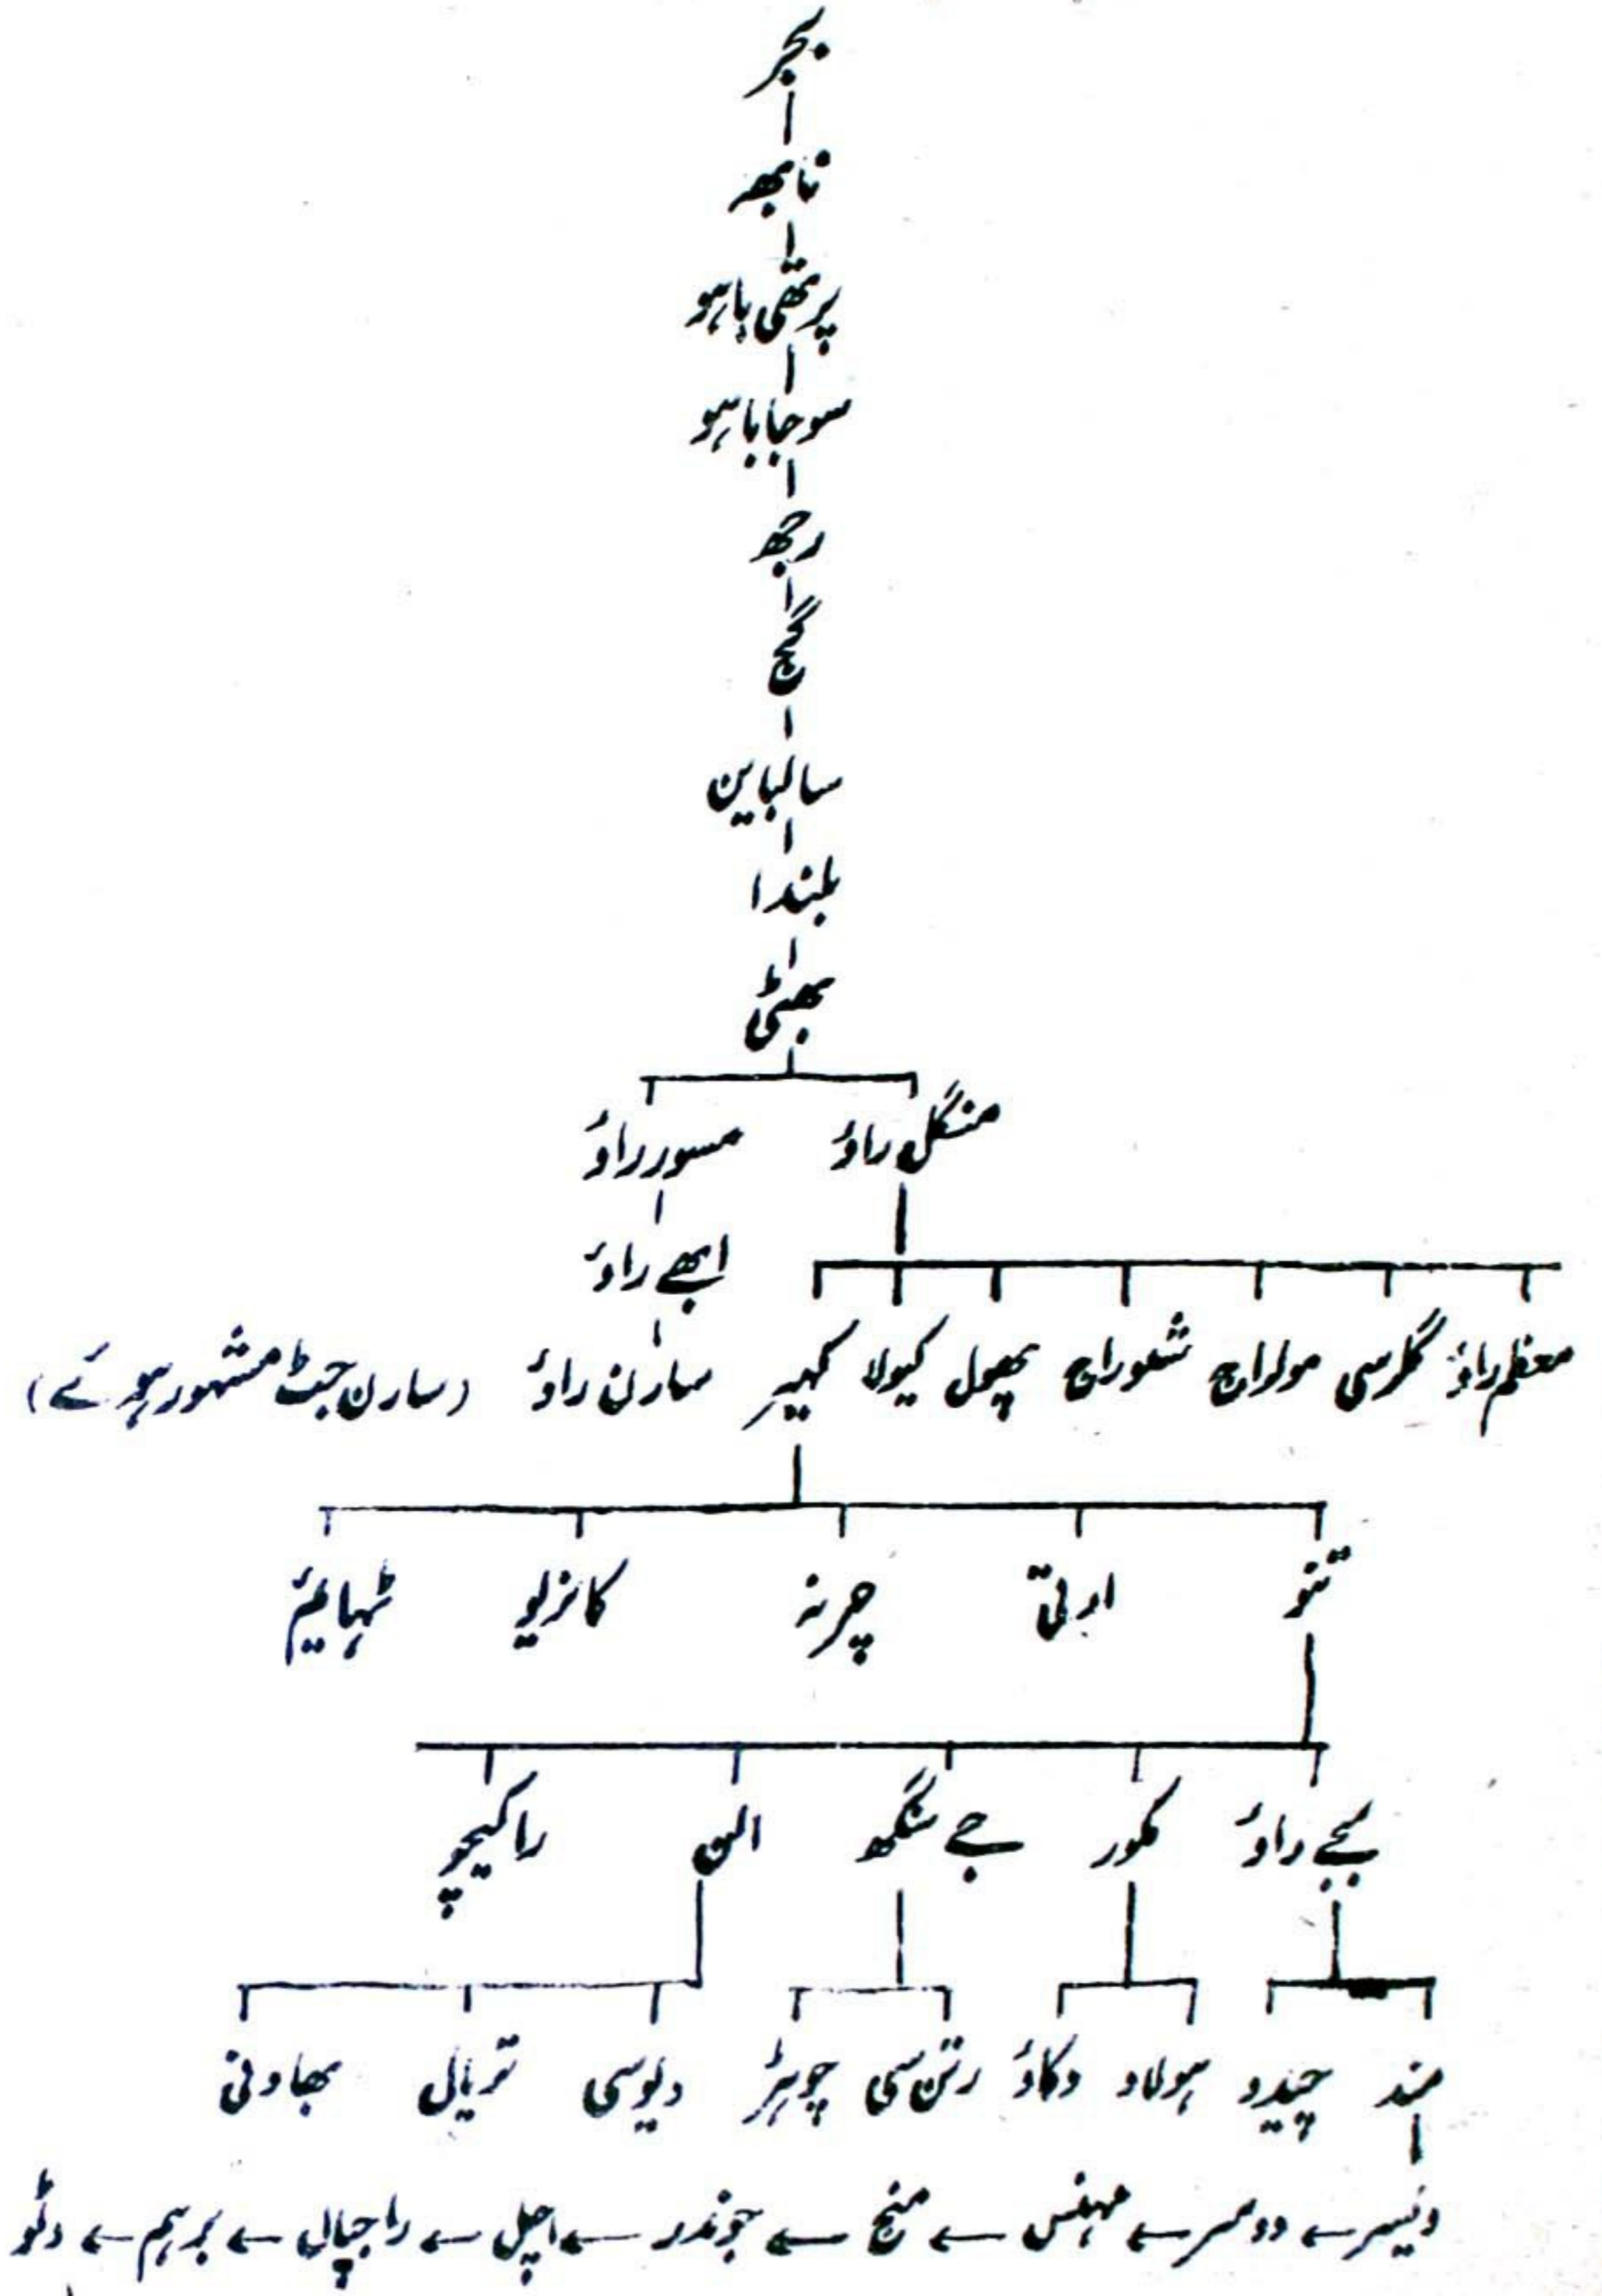 بجر
نابھ
پرتھی باہو
سوجا باہو
رجھ
گج
سالباین
بلندا
بھٹی
منگل راؤ مسور راؤ
ابھے راؤ
معظم راؤ گلرسی مولراج شوراج پھول کیولا کہیر سارن راؤ (سارن جٹ مشہور ہوئے)
تنو اوتی چرنہ کانزلیو ٹہایم
بجے راؤ مکور جے سنگھ الن راکیچو
مند چیدو ہولاد دکاؤ رتن سی چوہڑ دیوسی تریال بھاونی
دنیسر سے دوسر سے مہنس سے منج سے جوندر سے اچل سے راجپال سے برہم سے دٹو